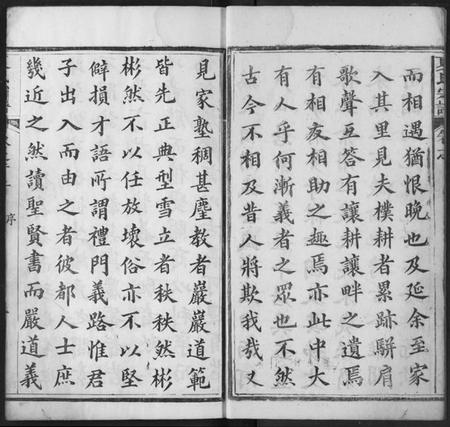 而相遇猶恨晚也及延余至家
入其里見夫樸耕者累跡駢肩
歌聲互答有讓耕讓畔之遺焉
有相友相助之趣焉亦此中大
有人乎何漸義者之眾也不然
古今不相及昔人將欺我哉又
見家塾稠甚麈教者嚴嚴道範
皆先正典型雪立者秩秩然彬
彬然不以任放壞俗亦不以堅
僻損才語所謂禮門義路惟君
子出入而由之者彼都人士庶
幾近之然讀聖賢書而嚴道義
序